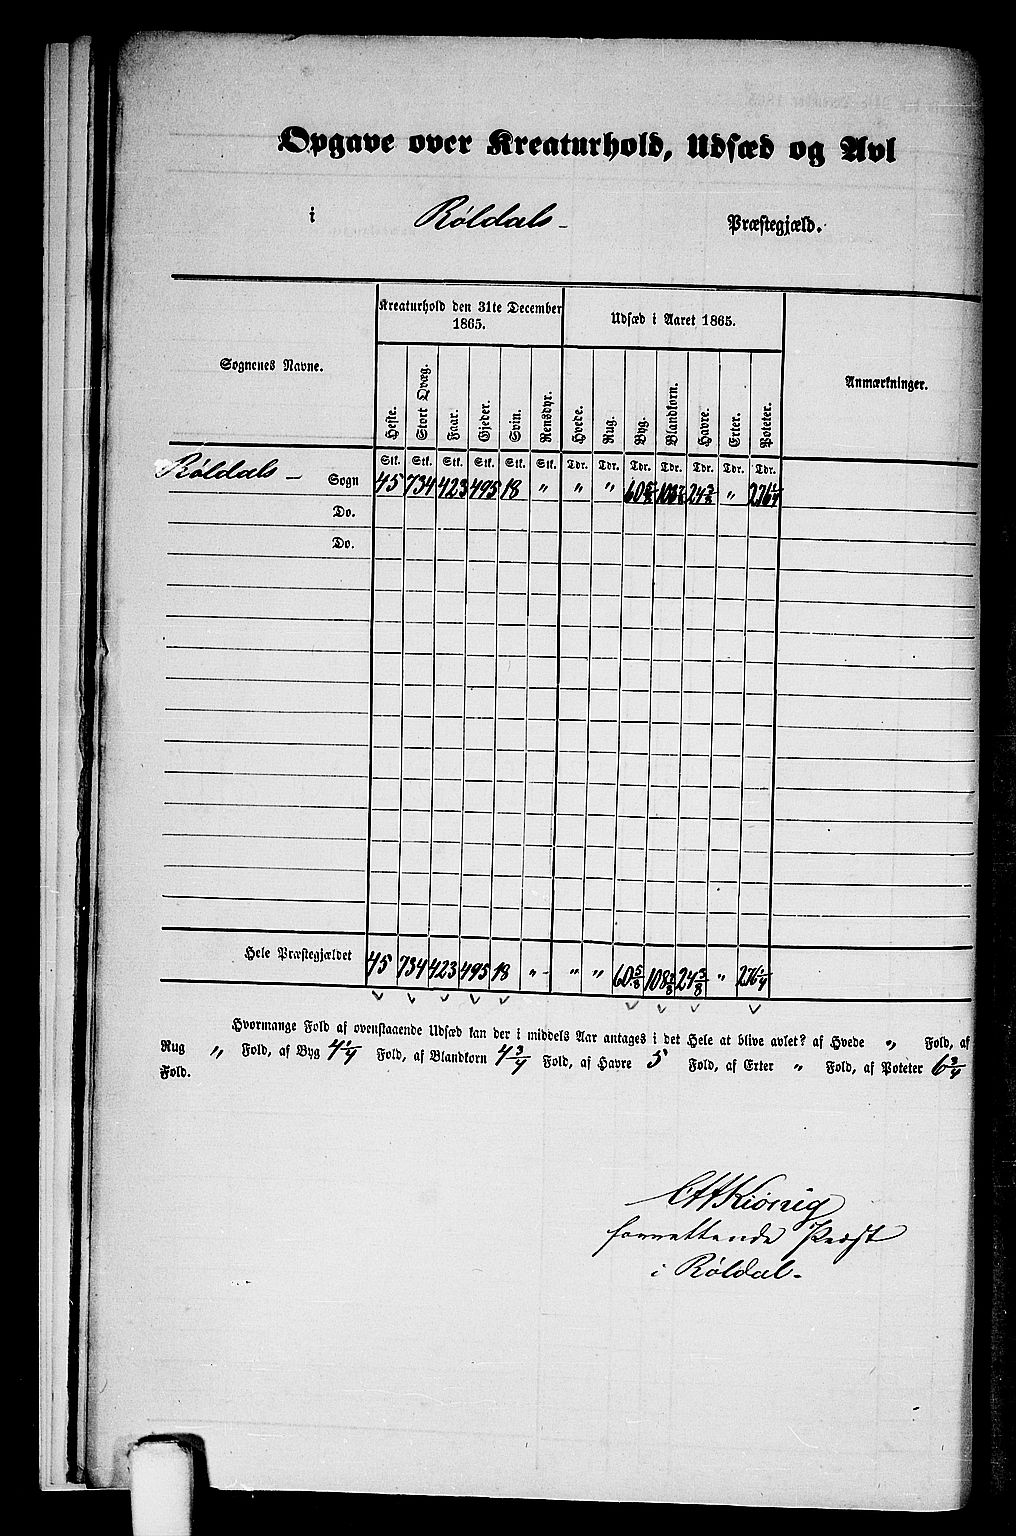 Opgave over Kreaturhold, Udsæd og Avl
i Røldals - Præstegjæld.
Sognenes Navne. Kreaturhold den 31te December 1865. Udsæd i Aaret 1865. Anmærkninger.
Heste. Stort Qvæg. Faar. Gjeder. Svin. Rensdyr. Hvede. Rug. Byg. Blandkorn. Havre. Erter. Poteter.
Stk. Stk. Stk. Stk. Stk. Stk. Tdr. Tdr. Tdr. Tdr. Tdr. Tdr. Tdr.
Røldals - Sogn 45 734 423 495 18 " " " 60 5/8 24 3/8 "
Do.
Do.
Hele Præstegjældet 45 734 423 495 18 " " " 60 5/8 108 3/8 24 3/8 "
Hvormange Fold af ovenstaaende Udsæd kan der i middels Aar antages i det Hele at blive avlet? af Hvede " Fold, af
Rug " Fold, af Byg 4 1/4 Fold, af Blandkorn 4 3/4 Fold, af Havre 5 Fold, af Erter " Fold, af Poteter 6 3/4
Fold.
forrettende Præst
i Røldal.